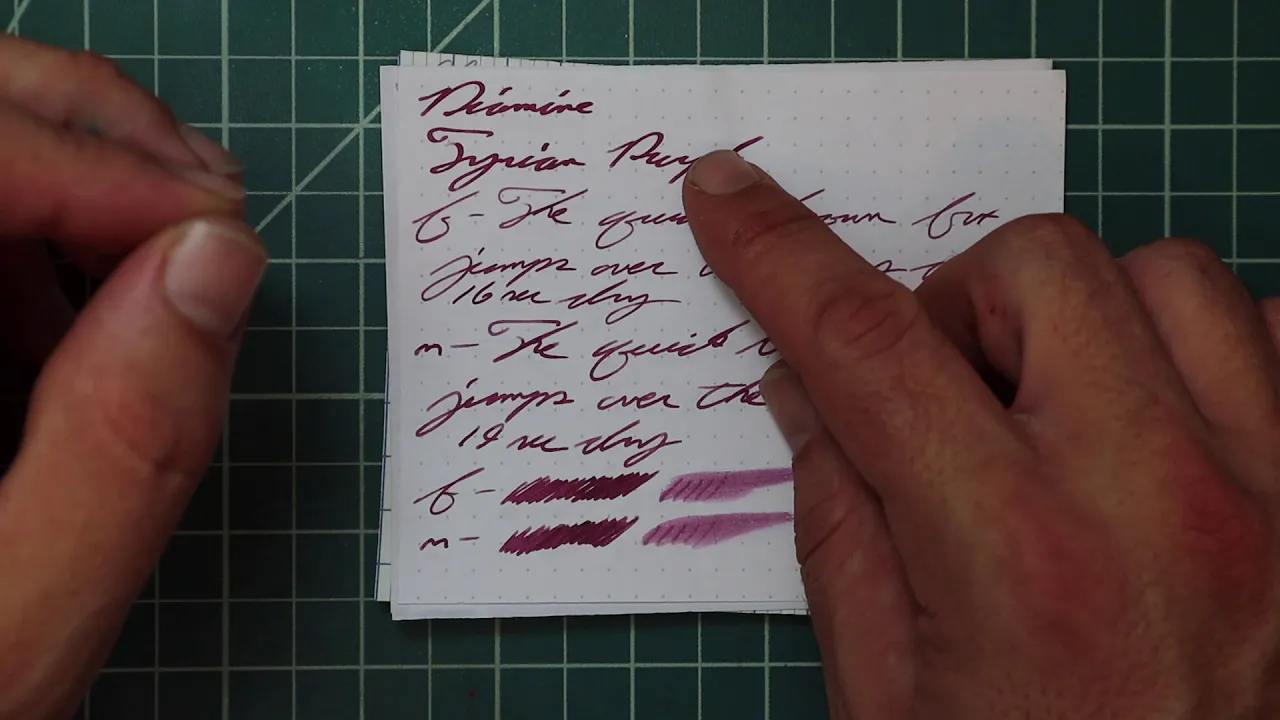 Diamine
Tyrian Purple
f - The quick brown fox
jumps over
16 sec dry
m - The quick
jumps over the
19 sec dry
f -
m -